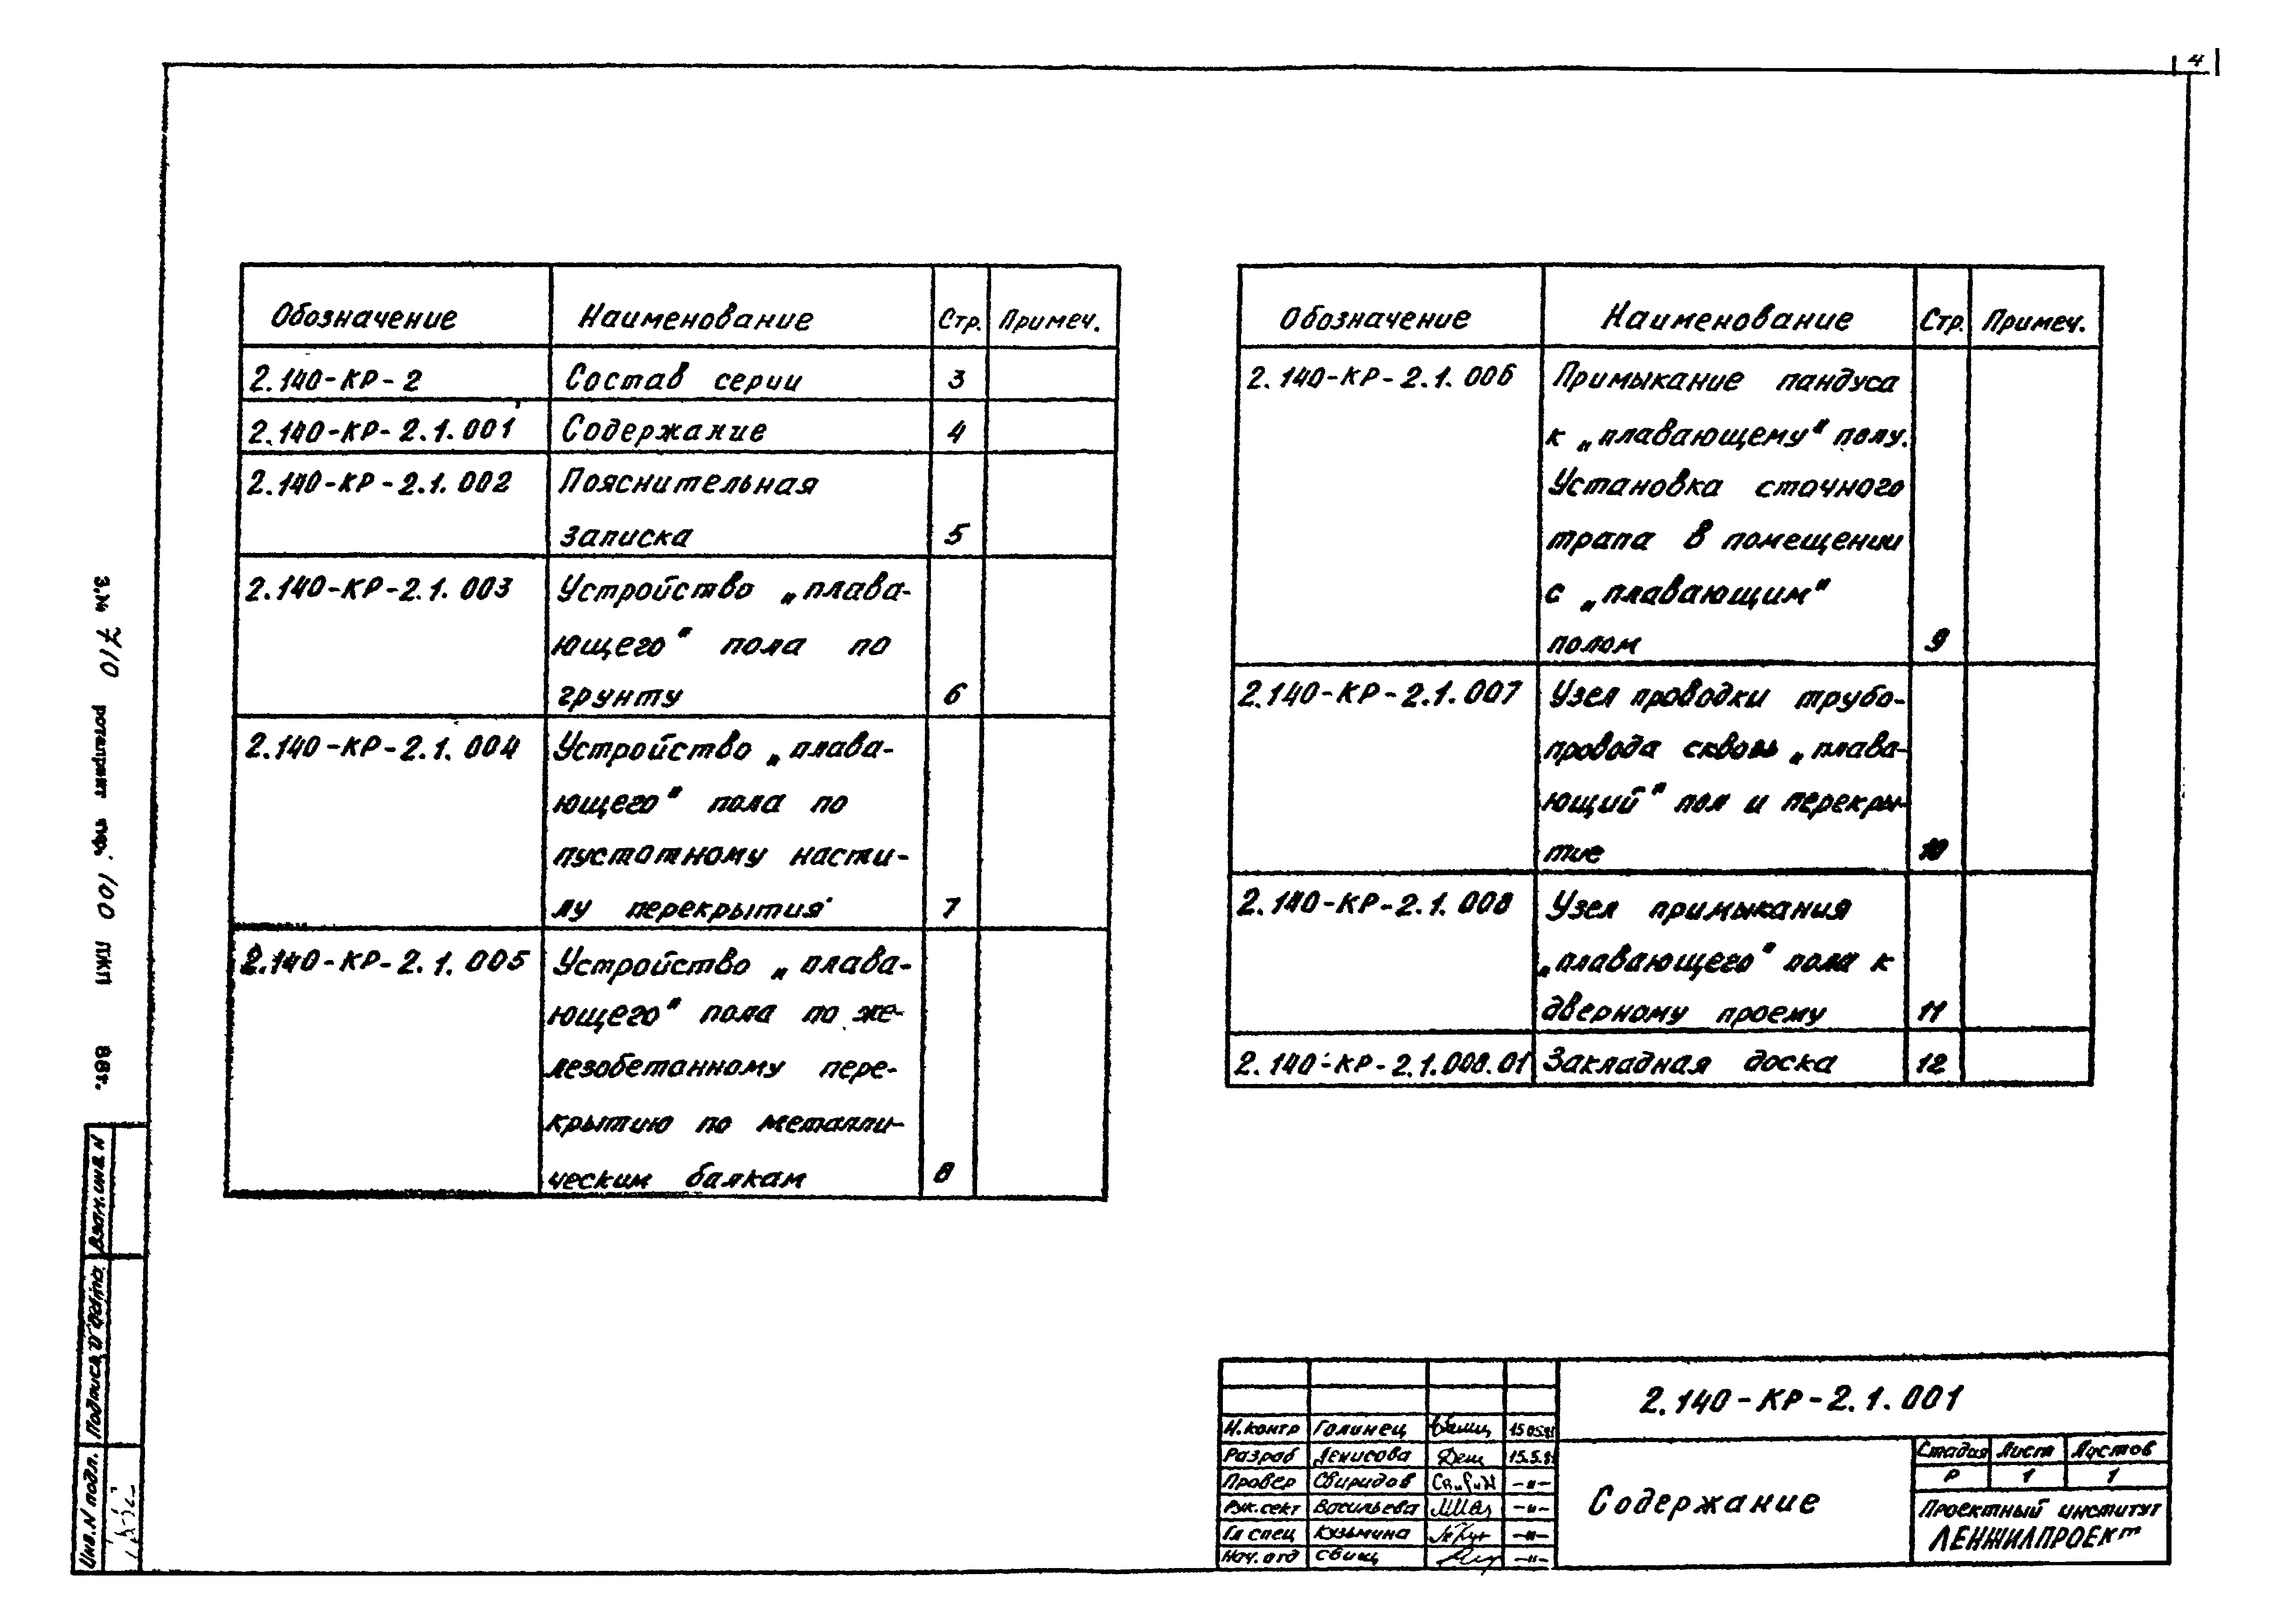 4
Обозначение Наименование Стр. Примеч.
2.140-КР-2 Состав серии 3
2.140-КР-2.1.001 Содержание 4
2.140-КР-2.1.002 Пояснительная
записка 5
2.140-КР-2.1.003 Устройство „плава-
ющего“ пола по
грунту 6
2.140-КР-2.1.004 Устройство „плава-
ющего“ пола по
пустотному насти-
лу перекрытия 7
2.140-КР-2.1.005 Устройство „плава-
ющего“ пола по же-
лезобетонному пере-
крытию по металли-
ческим балкам 8
Обозначение Наименование Стр. Примеч.
2.140-КР-2.1.006 Примыкание пандуса
к „плавающему“ полу.
Установка сточного
трапа в помещении
с „плавающим“
полом 9
2.140-КР-2.1.007 Узел проводки трубо-
провода сквозь „плава-
ющий“ пол и перекры-
тие 10
2.140-КР-2.1.008 Узел примыкания
„плавающего“ пола к
дверному проему 11
2.140-КР-2.1.008.01 Закладная доска 12
З.№ 710 ротапринт тир. 100 ЛЖП 88г.
Взам.инв.N
Подпись и дата
Инв.N подл.
2.140-КР-2.1.001
Н.контр Голинец
Разраб Денисова
Провер Свиридов -"-
Рук.сект Васильева -"-
Гл спец Кузьмина -"-
Нач.отд Свищ -"-
Содержание
Стадия Лист Листов
Р 1 1
Проектный институт
ЛЕНЖИЛПРОЕКТ